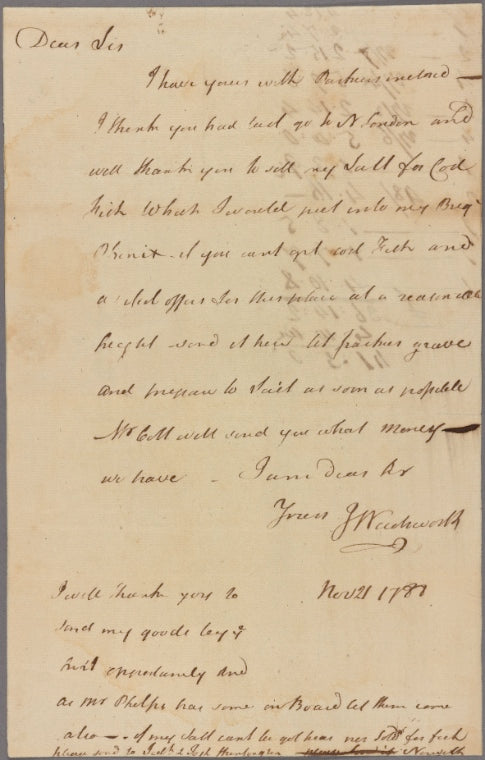 Dear Sir
I have yours with Barkers inclosed —
I think you had best go to N London and
will thank you to sell my Salt for Cod
Fish which I would put into my Brig
Phenix - if you cant get cod Fish and
a vessel offers for this place at a reasonable
freight - send it here let grave
and prepare to Sail as soon as possible
Mr Colt will send you what money —
we have - I am Dear Sir
Yours J Wadsworth
Nov 21 178
I will thank you to
send my goods by ye
first oppertunity and
as Mr Phelps has some on Board let them come
also — if my Salt cant be got here nor Sold for fish
please send to Jos Huntington Norwich